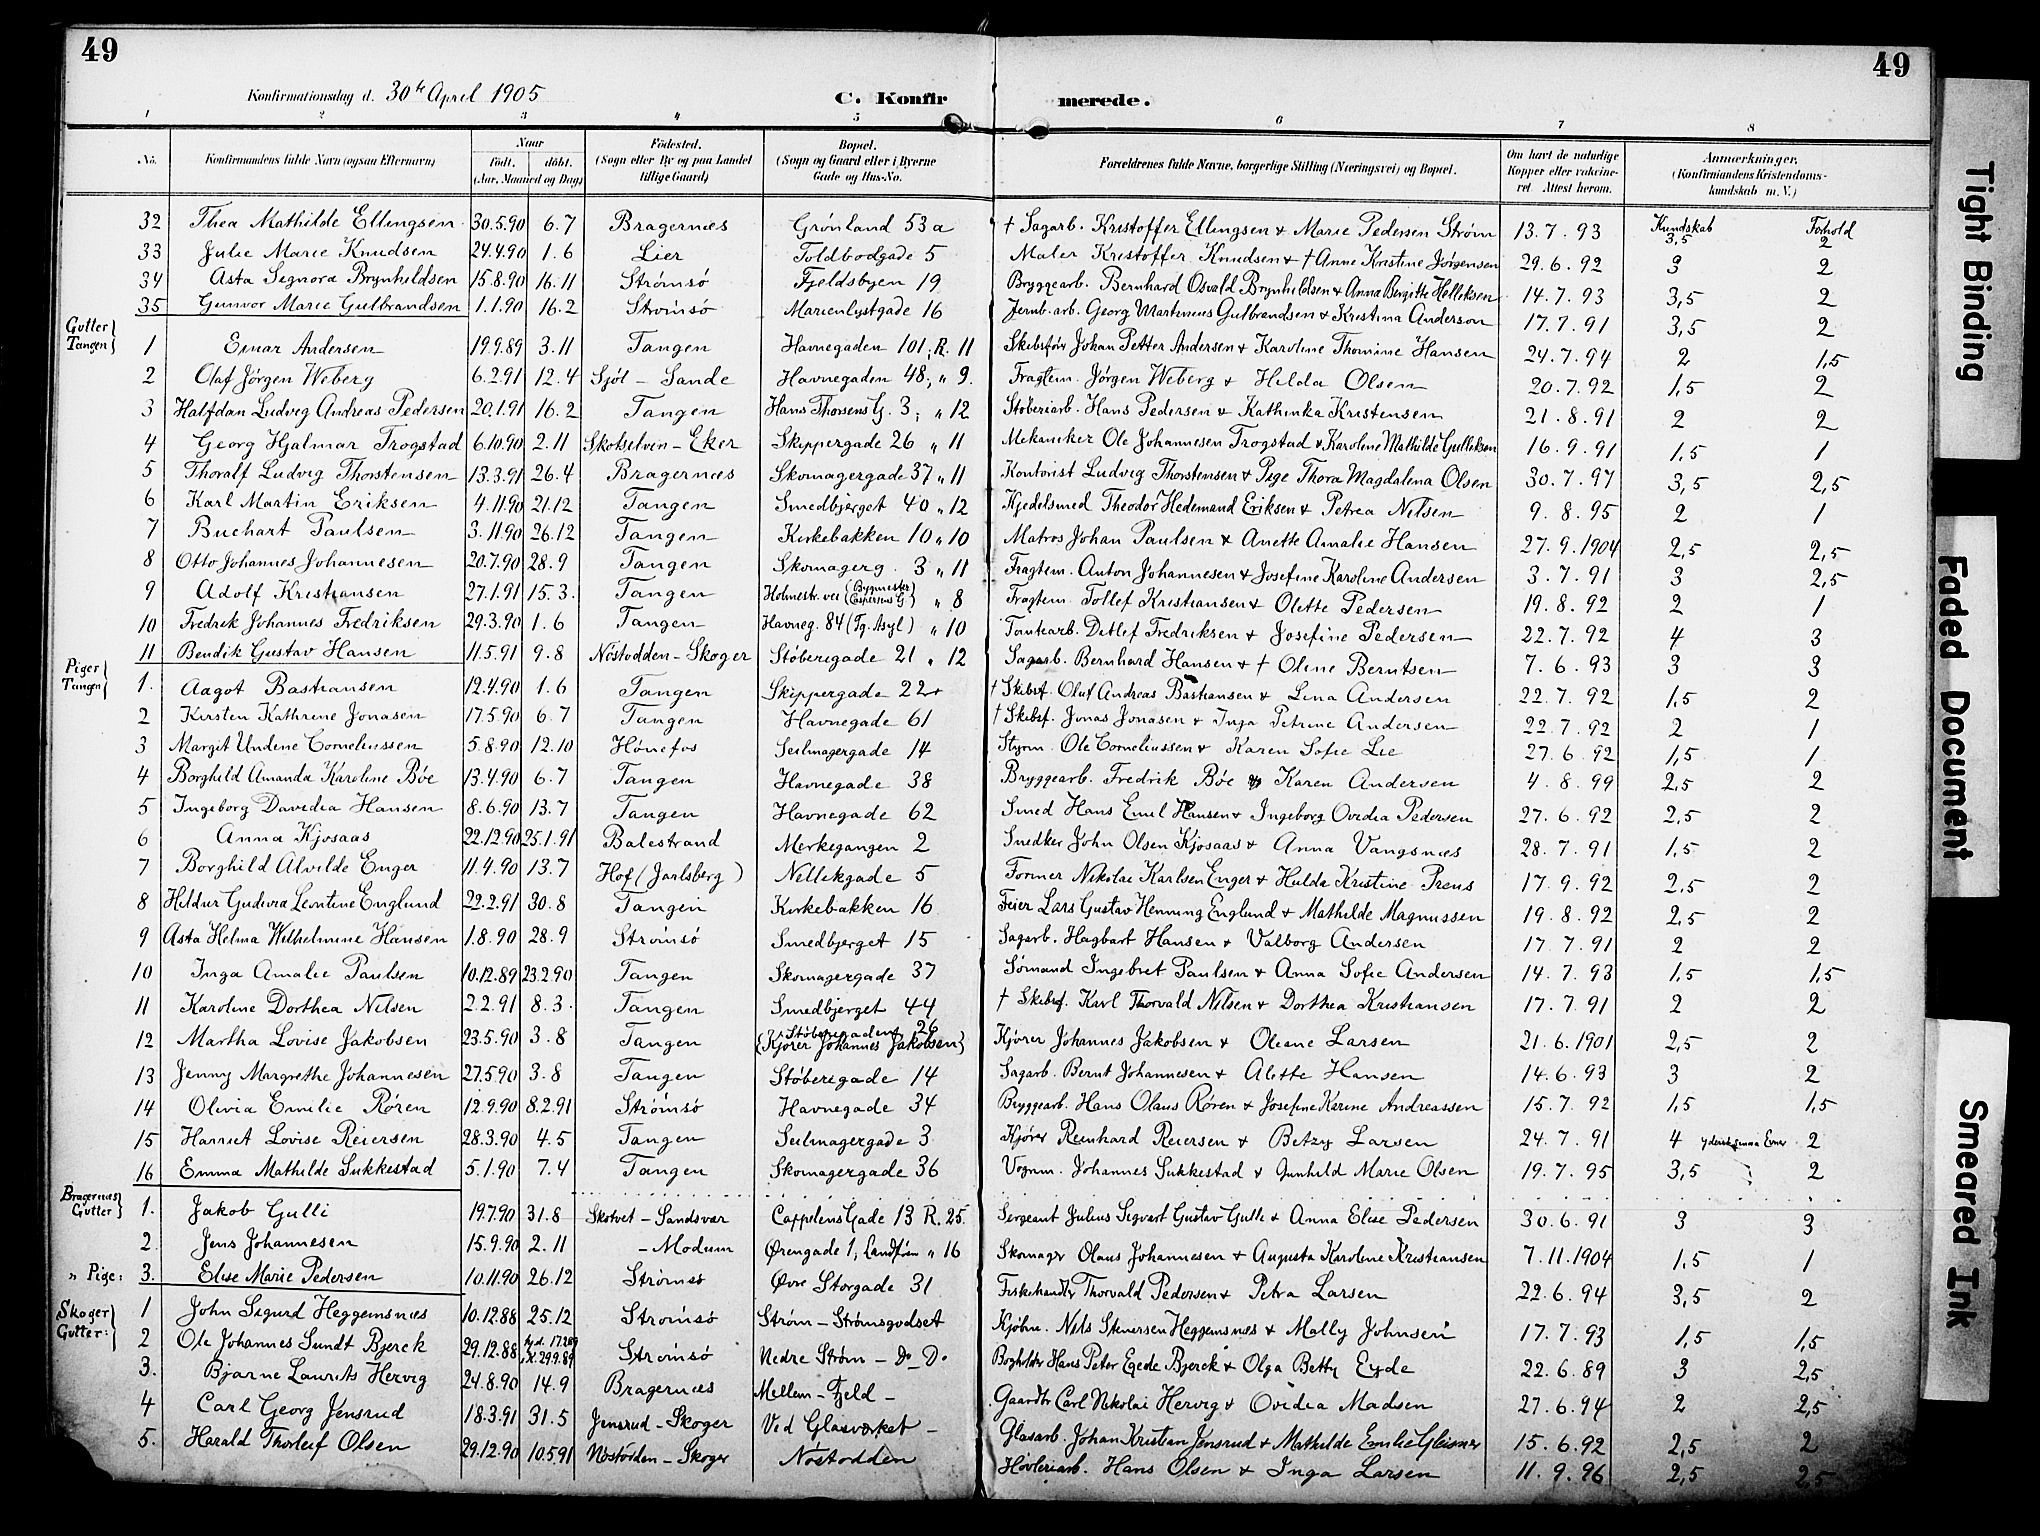 49
49
Konfirmationsdag d. 30te April 1905
C. Konfirmerede.
1 2 3 4 5 6 7 8
No. | Konfirmandens fulde Navn (ogsaa Efternavn) | Naar født. døbt. (Aar, Maaned og Dag) | Fødested. (Sogn eller By og paa Landet tillige Gaard) | Bopæl. (Sogn og Gaard eller i Byerne Gade og Hus-No. | Forældrenes fulde Navne, borgerlige Stilling (Næringsvei) og Bopæl. | Om havt de naturlige Kopper eller vaccineret. Attest herom. | Anmærkninger, (Konfirmandens Kristendomskundskab m. V.)
Kundskab Forhold
32 Thea Mathilde Ellingsen 30.5.90 6.7 Bragernæs Grønland 53a † Sagarb. Kristoffer Ellingsen & Marie Pedersen Strøm 13.7.93 3,5 2
33 Julie Marie Knudsen 24.4.90 1.6 Lier Toldbodgade 5 Maler Kristoffer Knudsen & † Anne Kristine Jørgensen 29.6.92 3 2
34 Asta Signora Brynhildsen 15.8.90 16.11 Strømsø Fjeldsbyen 19 Bryggearb. Bernhard Osvald Brynhildsen & Anna Bergitte Helliksen 14.7.93 3,5 2
35 Gunvor Marie Gulbrandsen 1.1.90 16.2 Strømsø Marienlystgade 16 Jernb.arb. Georg Martinius Gulbrandsen & Kristina Anderson 17.7.91 3,5 2
Gutter Tangen
1 Einar Andersen 19.9.89 3.11 Tangen Havnegaden 101; R. 11 Skibsfør Johan Petter Andersen & Karoline Thomine Hansen 24.7.94 2 1,5
2 Olaf Jørgen Weberg 6.2.91 12.4 Sjøl - Sande Havnegaden 48; " 9. Fragtem. Jørgen Weberg & Hilda Olsen 20.7.92 1,5 2
3 Halfdan Ludvig Andreas Pedersen 20.1.91 16.2 Tangen Hans Thorsens G. 3; " 12 Støberiarb. Hans Pedersen & Kathinka Kristensen 21.8.91 2 2
4 Georg Hjalmar Trogstad 6.10.90 2.11 Skotselven - Eker Skippergade 26 " 11 Mekaniker Ole Johannesen Trogstad & Karoline Mathilde Gulliksen 16.9.91 1,5 1
5 Thoralf Ludvig Thorstensen 13.3.91 26.4 Bragernæs Skomagergade 37 " 11 Kontorist Ludvig Thorstensen & Pige Thora Magdalena Olsen 30.7.97 3,5 2,5
6 Karl Martin Eriksen 4.11.90 21.12 Tangen Smedbjerget 40 " 12 Kjedelsmed Theodor Hedemand Eriksen & Petrea Nilsen 9.8.95 2 1
7 Buchart Paulsen 3.11.90 26.12 Tangen Kirkebakken 10 " 10 Matros Johan Paulsen & Anette Amalie Hansen 27.9.1904 2,5 2,5
8 Otto Johannes Johannesen 20.7.90 28.9 Tangen Skomagerg. 3 " 11 Fragtem. Anton Johannesen & Josefine Karoline Andersen 3.7.91 3 2,5
9 Adolf Kristiansen 27.1.91 15.3. Tangen Holmestr. vei (Bygmester Caspersens G.) " 8 Fragtem. Tollef Kristiansen & Olette Pedersen 19.8.92 2 1
10 Fredrik Johannes Fredriksen 29.3.90 1.6 Tangen Havneg. 84 (Tg. Asyl) " 10 Tomtearb. Ditlef Fredriksen & Josefine Pedersen 22.7.92 4 3
11 Bendik Gustav Hansen 11.5.91 9.8 Nøstodden - Skoger Støberigade 21 " 12 Sagarb. Bernhard Hansen & † Oline Berntsen 7.6.93 3 3
Piger Tangen
1. Aagot Bastiansen 12.4.90 1.6 Tangen Skippergade 22 † Skibsf. Oluf Andreas Bastiansen & Lina Andersen 22.7.92 1,5 2
2 Kirsten Kathrine Jonasen 17.5.90 6.7 Tangen Havnegade 61 † Skibsf. Jonas Jonasen & Inga Petrine Andersen 22.7.92 2 1
3 Margit Undine Corneliussen 5.8.90 12.10 Hønefos Seilmagergade 14 Styrm. Ole Corneliussen & Karen Sofie Lie 27.6.92 1,5 1
4 Borghild Amanda Karoline Bøe 13.4.90 6.7 Tangen Havnegade 38 Bryggearb. Fredrik Bøe & Karen Andersen 4.8.99 2,5 2
5 Ingeborg Davidia Hansen 8.6.90 13.7 Tangen Havnegade 62 Smed Hans Emil Hansen & Ingeborg Ovidia Pedersen 27.6.92 2,5 2
6 Anna Kjosaas 22.12.90 25.1.91 Balestrand Merkegangen 2 Snedker John Olsen Kjosaas & Anna Vangsnæs 28.7.91 1,5 2
7 Borghild Alvilde Enger 11.4.90 13.7 Hof (Jarlsberg) Nellikgade 5 Former Nikolai Karlsen Enger & Hulda Kristine Preus 17.9.92 2,5 2
8 Hildur Gudivia Leontine Englund 22.2.91 30.8 Tangen Kirkebakken 16 Feier Lars Gustav Henning Englund & Mathilde Magnussen 19.8.92 2,5 2
9 Asta Helma Wilhelmine Hansen 1.8.90 28.9 Strømsø Smedbjerget 15 Sagarb. Hagbart Hansen & Valborg Andersen 17.7.91 2 2
10 Inga Amalie Paulsen 10.12.89 23.2.90 Tangen Skomagergade 37 Sømand Ingebret Paulsen & Anna Sofie Andersen 14.7.93 1,5 1,5
11 Karoline Dorthea Nilsen 2.2.91 8.3. Tangen Smedbjerget 44 † Skibsf. Karl Thorvald Nilsen & Dorthea Kristiansen 17.7.91 2 2
12 Martha Lovise Jakobsen 23.5.90 3.8 Tangen Støberigaden 26 (Kjører Johannes Jakobsen) Kjører Johannes Jakobsen & Oleane Larsen 21.6.1901 2,5 2
13 Jenny Margrethe Johannesen 27.5.90 3.8 Tangen Støberigade 14 Sagarb. Bernt Johannesen & Alette Hansen 14.6.93 3 2
14 Olivia Emilie Røren 12.9.90 8.2.91 Strømsø Havnegade 34 Bryggearb. Hans Olaus Røren & Josefine Karine Andreassen 15.7.92 1,5 1,5
15 Harriet Lovise Reiersen 28.3.90 4.5 Tangen Seilmagergade 3 Kjører Reinhard Reiersen & Betzy Larsen 24.7.91 4 2
16 Emma Mathilde Sukkestad 5.1.90 7.4 Tangen Skomagergade 36 Vognm. Johannes Sukkestad & Gunhild Marie Olsen 19.7.95 3,5 2
Bragernæs Gutter
1. Jakob Gulli 19.7.90 31.8 Skotvet - Sandsvær Cappelens Gade 13 R. 25. Sergeant Julius Sigvart Gustav Gulli & Anna Elise Pedersen 30.6.91 3 3
2. Jens Johannesen 15.9.90 2.11 - Modum Ørengade 1; Landføen " 16 Skomager Olaus Johannesen & Augusta Karoline Kristiansen 7.11.1904 1,5 1
" Pige: 3. Elise Marie Pedersen 10.11.90 26.12 Strømsø Øvre Storgade 31 Fiskehandler Thorvald Pedersen & Petra Larsen 22.6.94 3,5 2
Skoger Gutter:
1 John Sigurd Heggemsnæs 10.12.88 25.12 Strømsø Strøm - Strømsgodset Kjøbm. Nils Sknersen Heggemsnæs & Mally Johnsen 17.7.93 1,5 1,5
2 Ole Johannes Sundt Bjerck 29.12.88 hj.d. 17.2.89 K. 29.9.89 Strømsø Nedre Strøm - Do - Do Boghldr Hans Peter Egede Bjerck & Olga Betty Eyde 22.6.89 3 2,5
3. Bjarne Laurits Hervig 24.8.90 14.9 Bragernæs Mellem - Fjeld - Gaardbr Carl Nikolai Hervig & Ovidia Madsen 27.6.94 2 2,5
4 Carl Georg Jensrud 18.3.91 31.5 Jensrud - Skoger Ved Glasværket - Glasarb. Johan Kristian Jensrud & Mathilde Emilie Gleisner 15.6.92 2,5 2
5. Harald Thorleif Olsen 29.12.90 10.5.91 Nøstodden - Skoger Nøstodden Høvleriarb. Hans Olsen & Inga Larsen 11.9.96 2,5 2,5
Tight Binding
Faded Document
Smeared Ink